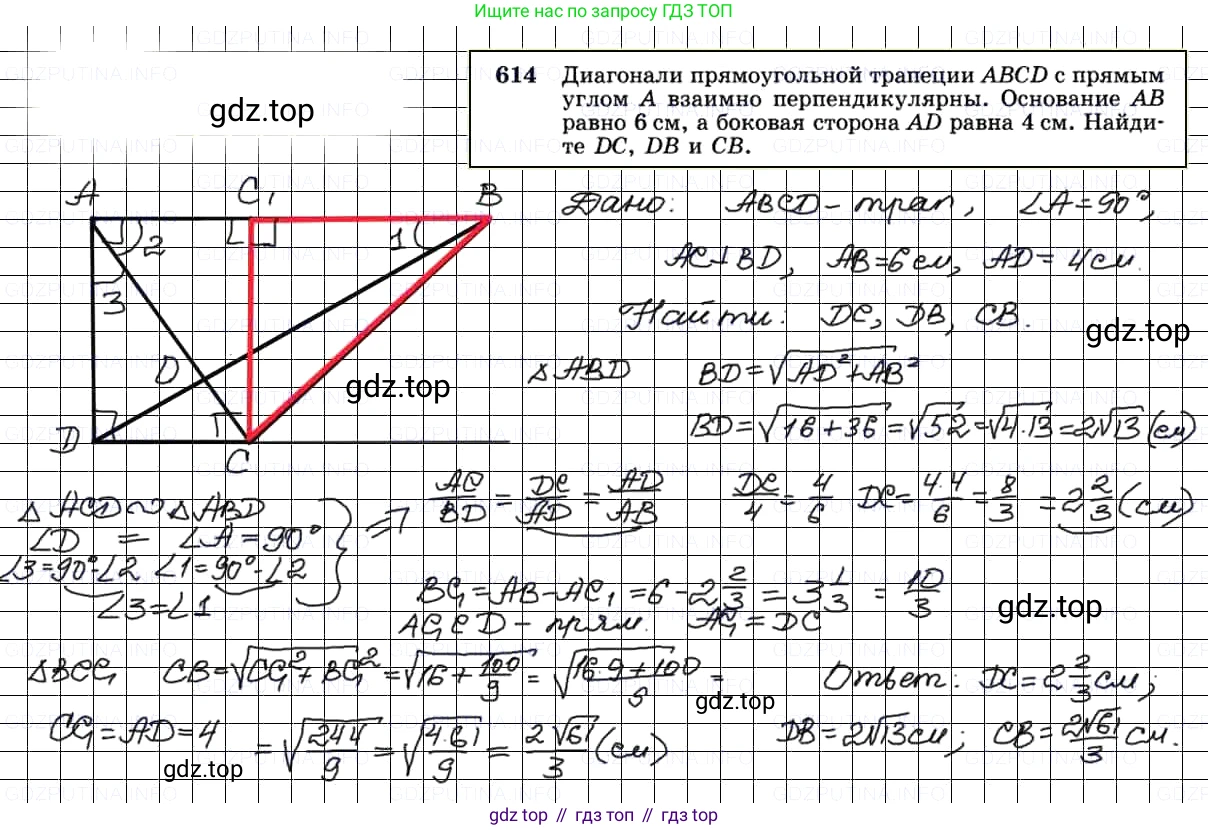 Ищите нас по запросу ГДЗ ТОП
614 Диагонали прямоугольной трапеции ABCD с прямым
углом A взаимно перпендикулярны. Основание AB
равно 6 см, а боковая сторона AD равна 4 см. Найди-
те DC, DB и CB.
gdz.top
A C₁ B
2 1
3
O
D C
gdz.top
Дано: ABCD - трап, ∠A = 90°,
AC⊥BD, AB=6см, AD= 4см.
Найти: DC, DB, CB.
gdz.top
△ABD BD=√(AD²+AB²)
BD=√(16+36)=√52=√(4·13)=2√13 (см)
△ACD∼△ABD
∠D = ∠A=90°
∠3=90°-∠2 ∠1=90°-∠2
∠3=∠1
=>
AC/BD = DC/AD = AD/AB DC/4 = 4/6 DC= 4·4/6 = 8/3 = 2 2/3 (см)
BC₁=AB-AC₁=6-2 2/3 = 3 1/3 = 10/3
AC₁CD - прям. AC₁=DC
gdz.top
△BCC₁ CB=√(CC₁²+BC₁²)=√(16+100/9)=√((16·9+100)/9)=
CC₁=AD=4 =√(244/9)=√(4·61/9)= 2√61/3 (см)
gdz.top
gdz.top
Ответ: DC=2 2/3 см;
DB=2√13см; CB=2√61/3 см.
gdz top // гдз топ // gdz top